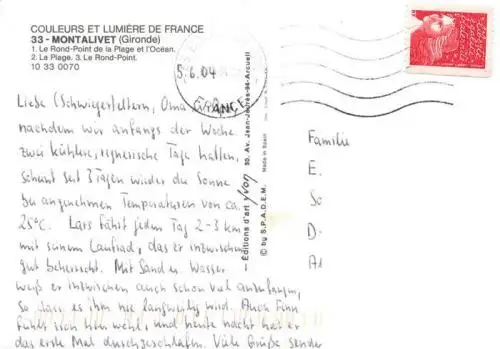 COULEURS ET LUMIÈRE DE FRANCE
33 - MONTALIVET (Gironde)
1. Le Rond-Point de la Plage et l'Océan.
2. La Plage. 3. Le Rond-Point.
10 33 0070
5.6.04
FRANCE
Liebe (Schwieger)eltern, Oma
nachdem wir anfangs der Woche
zwei kühlere, regnerische Tage hatten,
scheint seit 3 Tagen wieder die Sonne
bei angenehmen Temperaturen von ca.
25°C. Lars fährt jeden Tag 2-3 km
mit seinem Laufrad, das er inzwischen
gut beherrscht. Mit Sand u. Wasser
weiß er inzwischen auch schon viel anzufangen,
so dass es ihm nie langweilig wird. Auch Finn
fühlt sich hier wohl, und heute nacht hat er
das erste Mal durchgeschlafen. Viele Grüße senden
Editions d'art Yvon
30, Av. Jean-Jaurès-94-Arcueil
© by S.P.A.D.E.M.
Made in Spain
Familie
E.
So
D-
A1